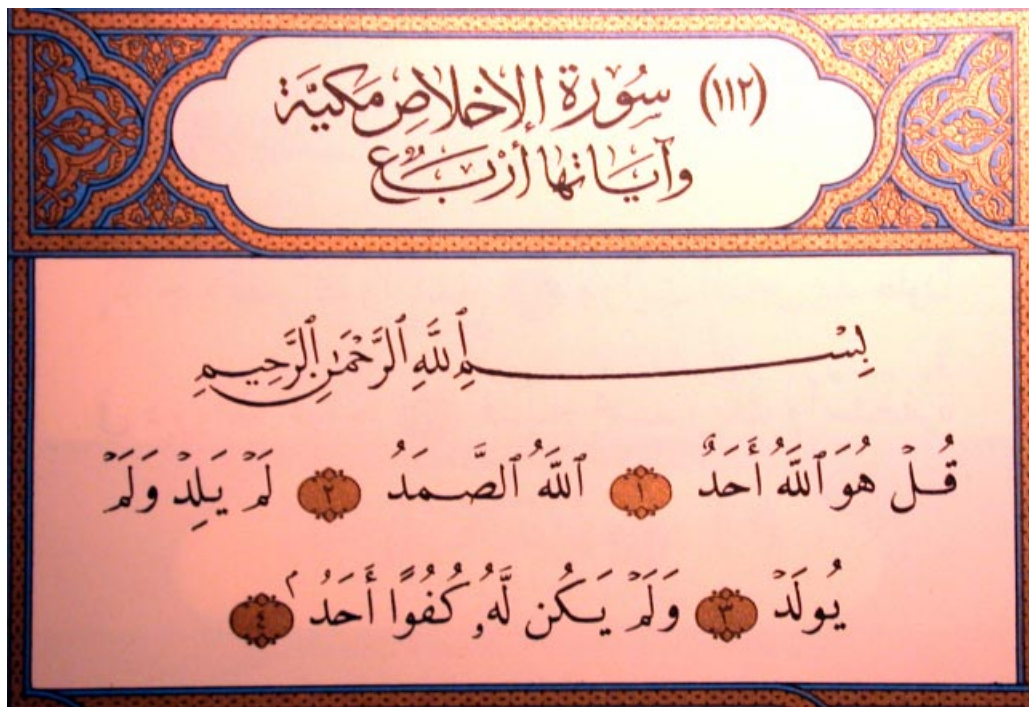 (١١٢) سُورَة الإخلاصِ مَكيَّة
وآيَاتهَا أَرْبَعُ
بِسْمِ ٱللَّهِ ٱلرَّحْمَٰنِ ٱلرَّحِيمِ
قُلْ هُوَ ٱللَّهُ أَحَدٌ ١ ٱللَّهُ ٱلصَّمَدُ ٢ لَمْ يَلِدْ وَلَمْ
يُولَدْ ٣ وَلَمْ يَكُن لَّهُۥ كُفُوًا أَحَدُۢ ٤